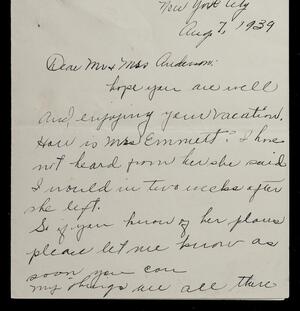 New York City
Aug 7, 1939
Dear Mr & Mrs Anderson:
hope you are well
and enjoying your vacation.
How is Mrs Emmett? I have
not heard from her she said
I would in two weeks after
she left.
So if you know of her plans
please let me know as
soon you can
my things are all there